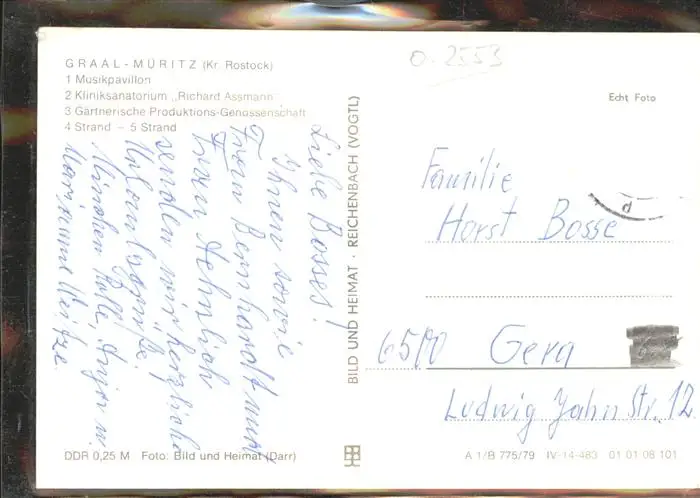 GRAAL-MÜRITZ (Kr. Rostock)
1 Musikpavillon
2 Kliniksanatorium „Richard Assmann"
3 Gärtnerische Produktions-Genossenschaft
4 Strand – 5 Strand
Liebe Bosses!
Ihnen sowie
Frau Bernhardt und
Frau Aehnlich
senden wir herzliche
Urlaubsgrüße
Marianne
DDR 0,25 M Foto: Bild und Heimat (Darr)
BILD UND HEIMAT · REICHENBACH (VOGTL)
0-2553
Echt Foto
Familie
Horst Bosse
6500 Gera
Ludwig Jahn Str. 12
A 1/B 775/79 IV-14-483 01 01 08 101